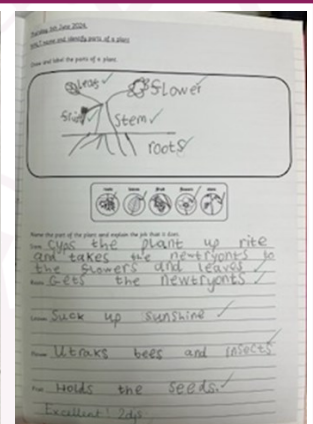 Thursday 6th June 2024
WALT name and identify parts of a plant
Draw and label the parts of a plant.
Leaf
Flower
Stem
roots
roots leaves fruit flowers stem
Name the part of the plants and explain the job that it does.
Stem Cyps the plant up rite
and takes the newtryonts to
the flowers and leaves
Roots Gets the newtryonts
Leaves Suck up sunshine
Flower Utraks bees and insects
Fruit Holds the seeds.
Excellent! 2djs